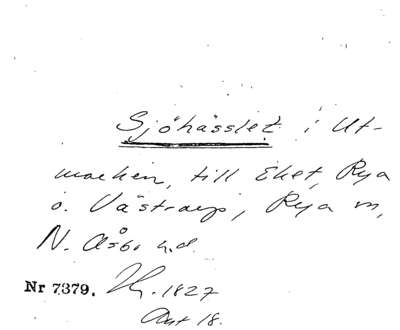 Sjöhässlet i Ut-
marken, till Eket, Rya
o. Västrarp, Rya sn,
N. Åsbo hd.
Nr 7379. 1827
Akt 18.